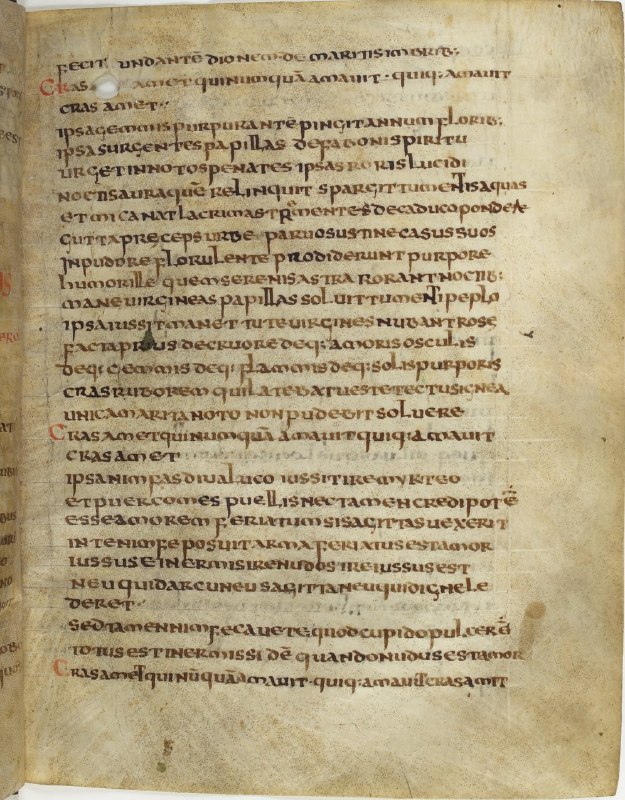 FECIT UNDANTĒ DIONEM·DE MARITIS IMBRIB:
CRAS AMET QUI NUMQUĀ AMAVIT · QUIQ: AMAVIT
CRAS AMET:
IPSA GEMMIS PURPURANTĒ PINGIT ANNUM FLORIB:
IPSA SURGENTES PAPILLAS DE FABONI SPIRITU
URGET IN NOTOS PENATES IPSAS RORIS LUCIDI
NOCTIS AURA QUĒ RELINQUIT SPARGIT TUMENTIS AQUAS
ET MICANAT LACRIMAS TREMENTES DECADUCO PONDERE
GUTTA PRĘCEPS URBE PARUO SUSTINE CASUS SUOS
IN PUDORE FLORULENTE PRODIDERUNT PURPORE
HUMOR ILLE QUEM SERENIS ASTRA RORANT NOCTIB:
MANE UIRGINEAS PAPILLAS SOLUIT TUMENTI PEPLO
IPSA IUSSIT MANET TUTE UIRGINES NUBANT ROSE
FACTA PRIUS DECRUORE DEQ: AMORIS OSCULIS
DEQ: GEMMIS DEQ: FLAMMIS DEQ: SOLIS PURPORIS
CRAS RUBOREM QUI LATEBAT UESTE TECTUS IGNEA
UNICA MARITA NOTO NON PUDEBIT SOLUERE
CRAS AMET QUI NUMQUĀ AMAUIT QUIQ: AMAUIT
CRAS AMET
IPSA NIMFAS DIUA LUCO IUSSIT IRE MYRTEO
ET PUER COMES PUELLIS NEC TAMEN CREDI POTĒ
ESSE AMOREM FERIATUM SI SAGITTAS UEXERIT
INTE NIMFE POSUIT ARMA FERIATUS EST AMOR
IUSSUS E INERMIS IRE NUDOS IRE IUSSUS EST
NEU QUID ARCU NEU SAGITTA NEU QUID IGNE LE
DERET·
SED TAMEN NIMFE CAUETE QUOD CUPIDO PULCER Ē
TOTUS EST INERMIS SI DĒ QUANDO NUDUS EST AMOR
CRAS AMET QUI NŪQUĀ AMAUIT · QUIQ: AMAUIT CRAS AMIT